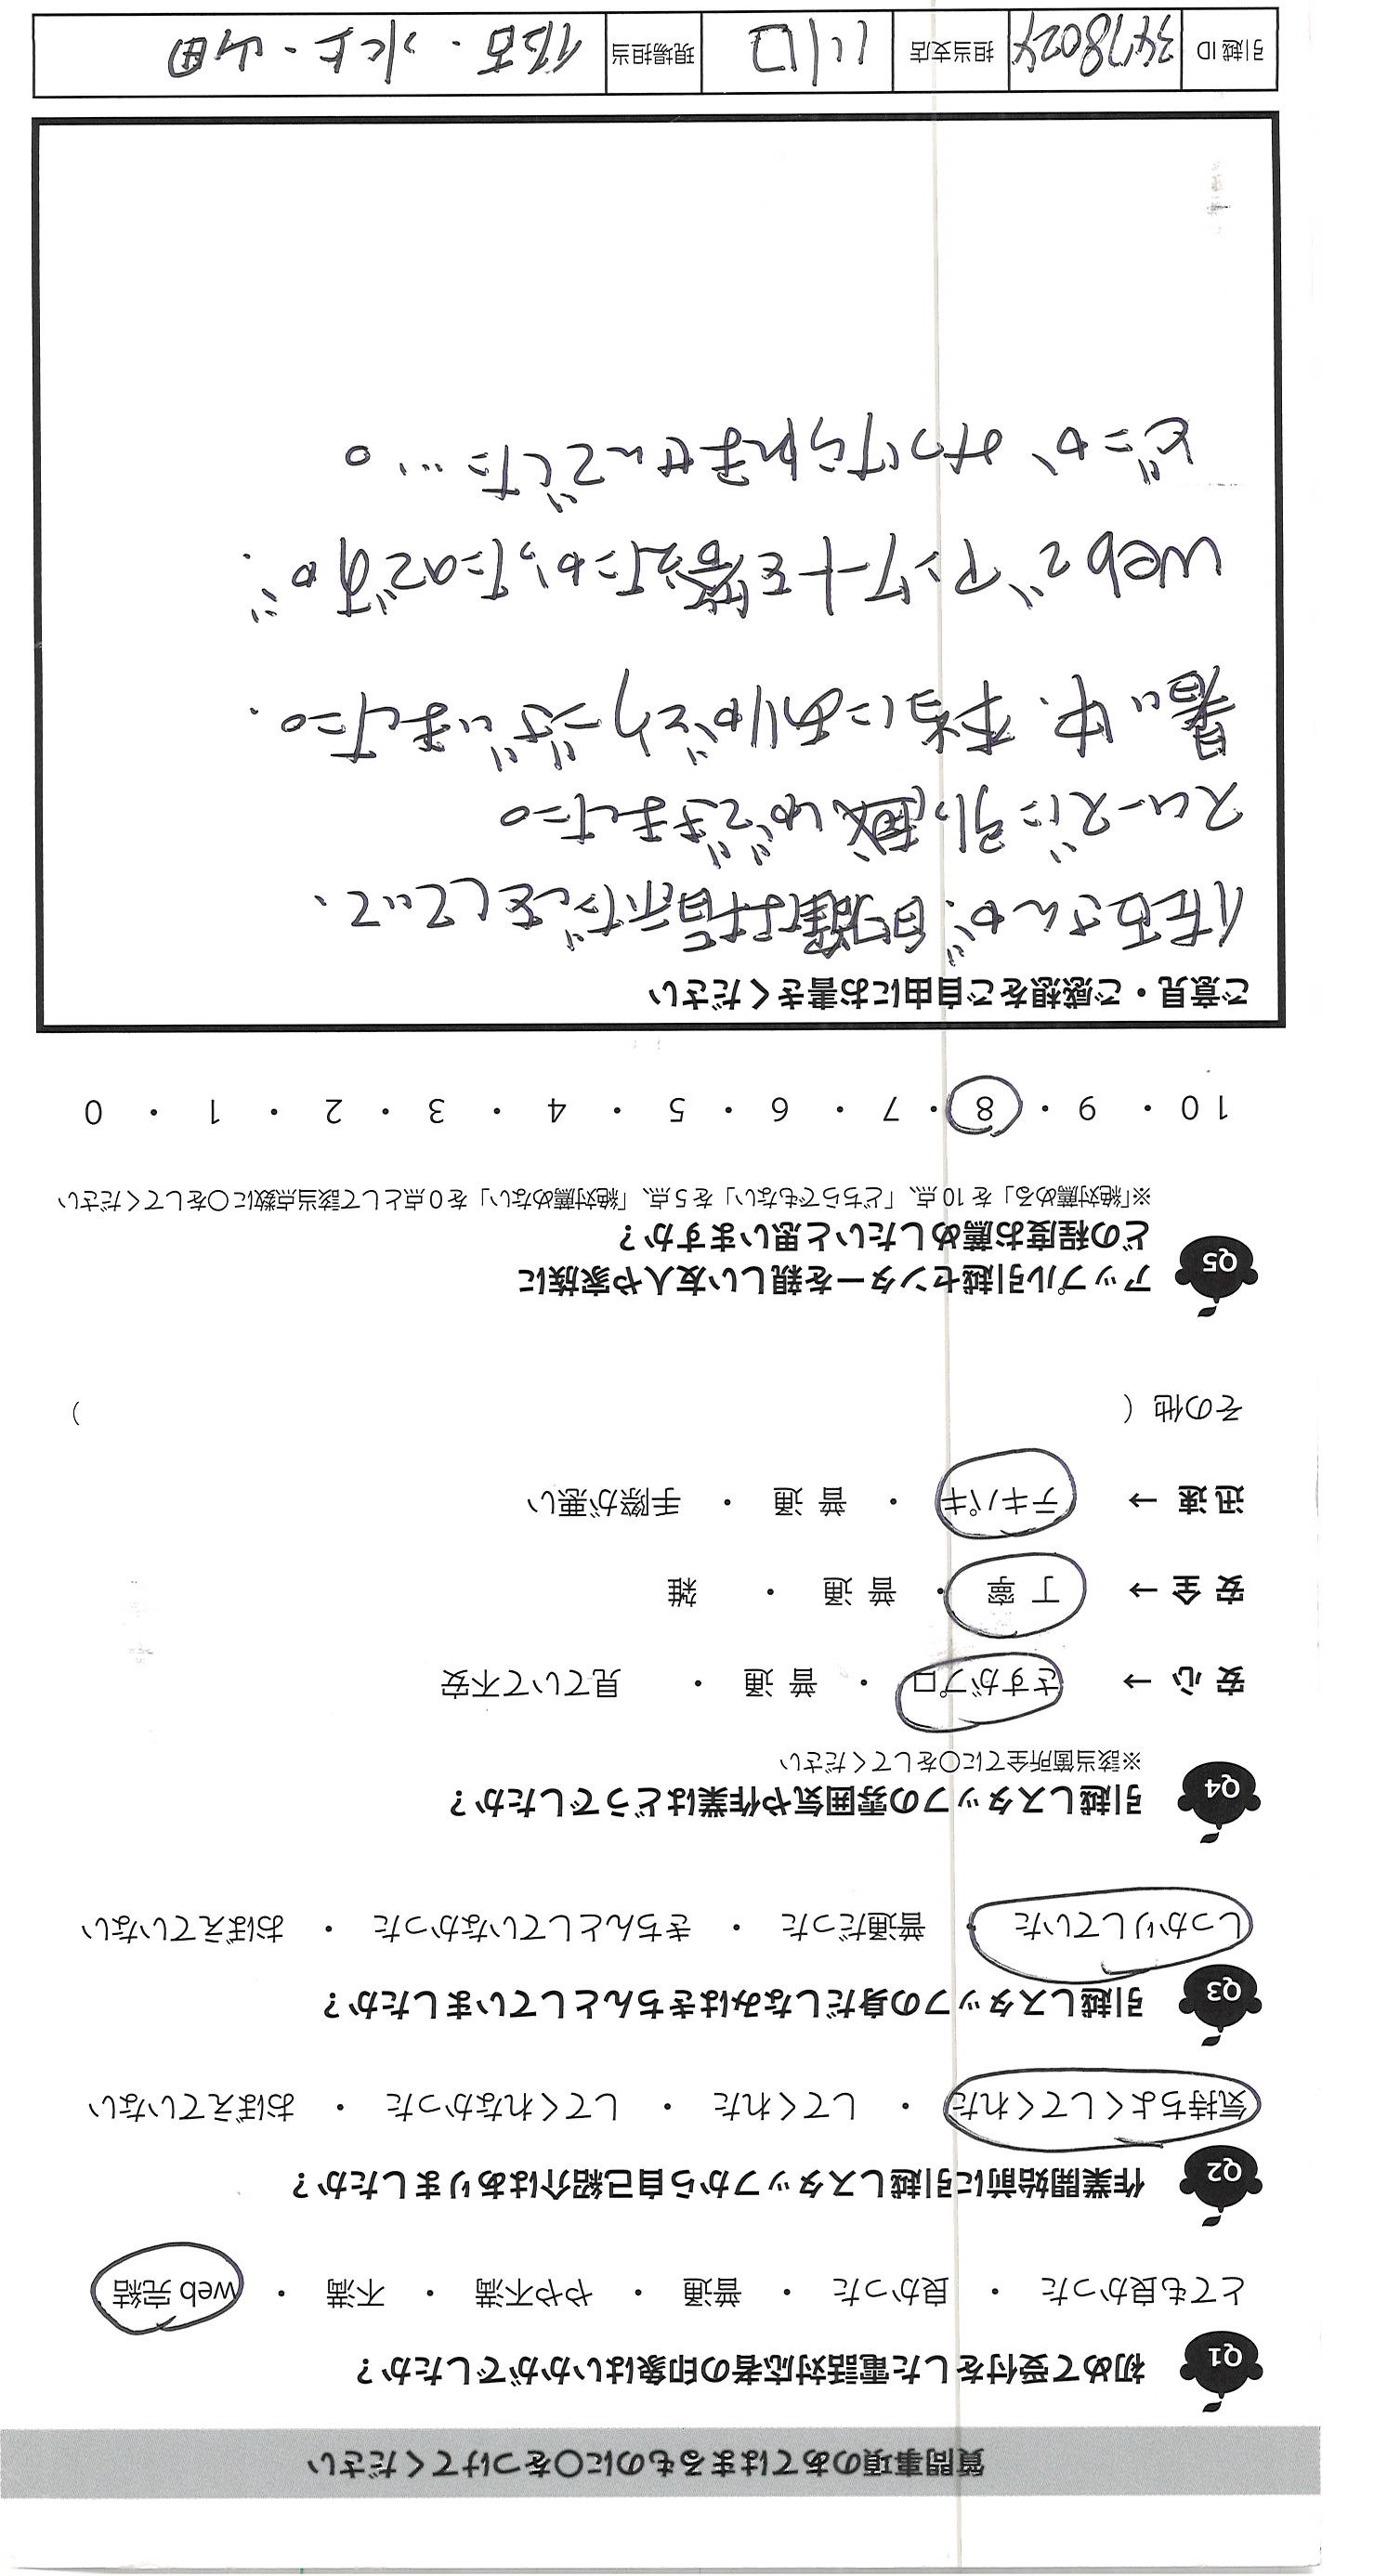 質問事項のあてはまるものに〇をつけてください
Q1 初めて受付をした電話対応者の印象はいかがでしたか？
とても良かった ・ 良かった ・ 普通 ・ やや不満 ・ 不満 ・ web 完結
Q2 作業開始前に引越しスタッフから自己紹介はありましたか？
気持ちよくしてくれた ・ してくれた ・ してくれなかった ・ おぼえていない
Q3 引越しスタッフの身だしなみはきちんとしていましたか？
しっかりしていた ・ 普通だった ・ きちんとしていなかった ・ おぼえていない
Q4 引越しスタッフの雰囲気や作業はどうでしたか？
※該当箇所全てに〇をしてください
安心 → さすがプロ ・ 普通 ・ 見ていて不安
安全 → 丁寧 ・ 普通 ・ 雑
迅速 → テキパキ ・ 普通 ・ 手際が悪い
その他（ ）
Q5 アップル引越センターを親しい友人や家族に
どの程度お薦めしたいと思いますか？
※「絶対薦める」を 10 点、「どちらでもない」を 5 点、「絶対薦めない」を 0 点として該当点数に〇をしてください
10 ・ 9 ・ 8 ・ 7 ・ 6 ・ 5 ・ 4 ・ 3 ・ 2 ・ 1 ・ 0
ご意見・ご感想をご自由にお書きください
さんが、的確な指示だしをしていて、
スムーズに引っ越しができました。
暑い中、本当にありがとうございました。
Webでアンケートを答えたかったのですが、
どこか、みつけられませんでした…。
引越 ID 3478024 担当支店 川口 現場担当 ・水上・山田